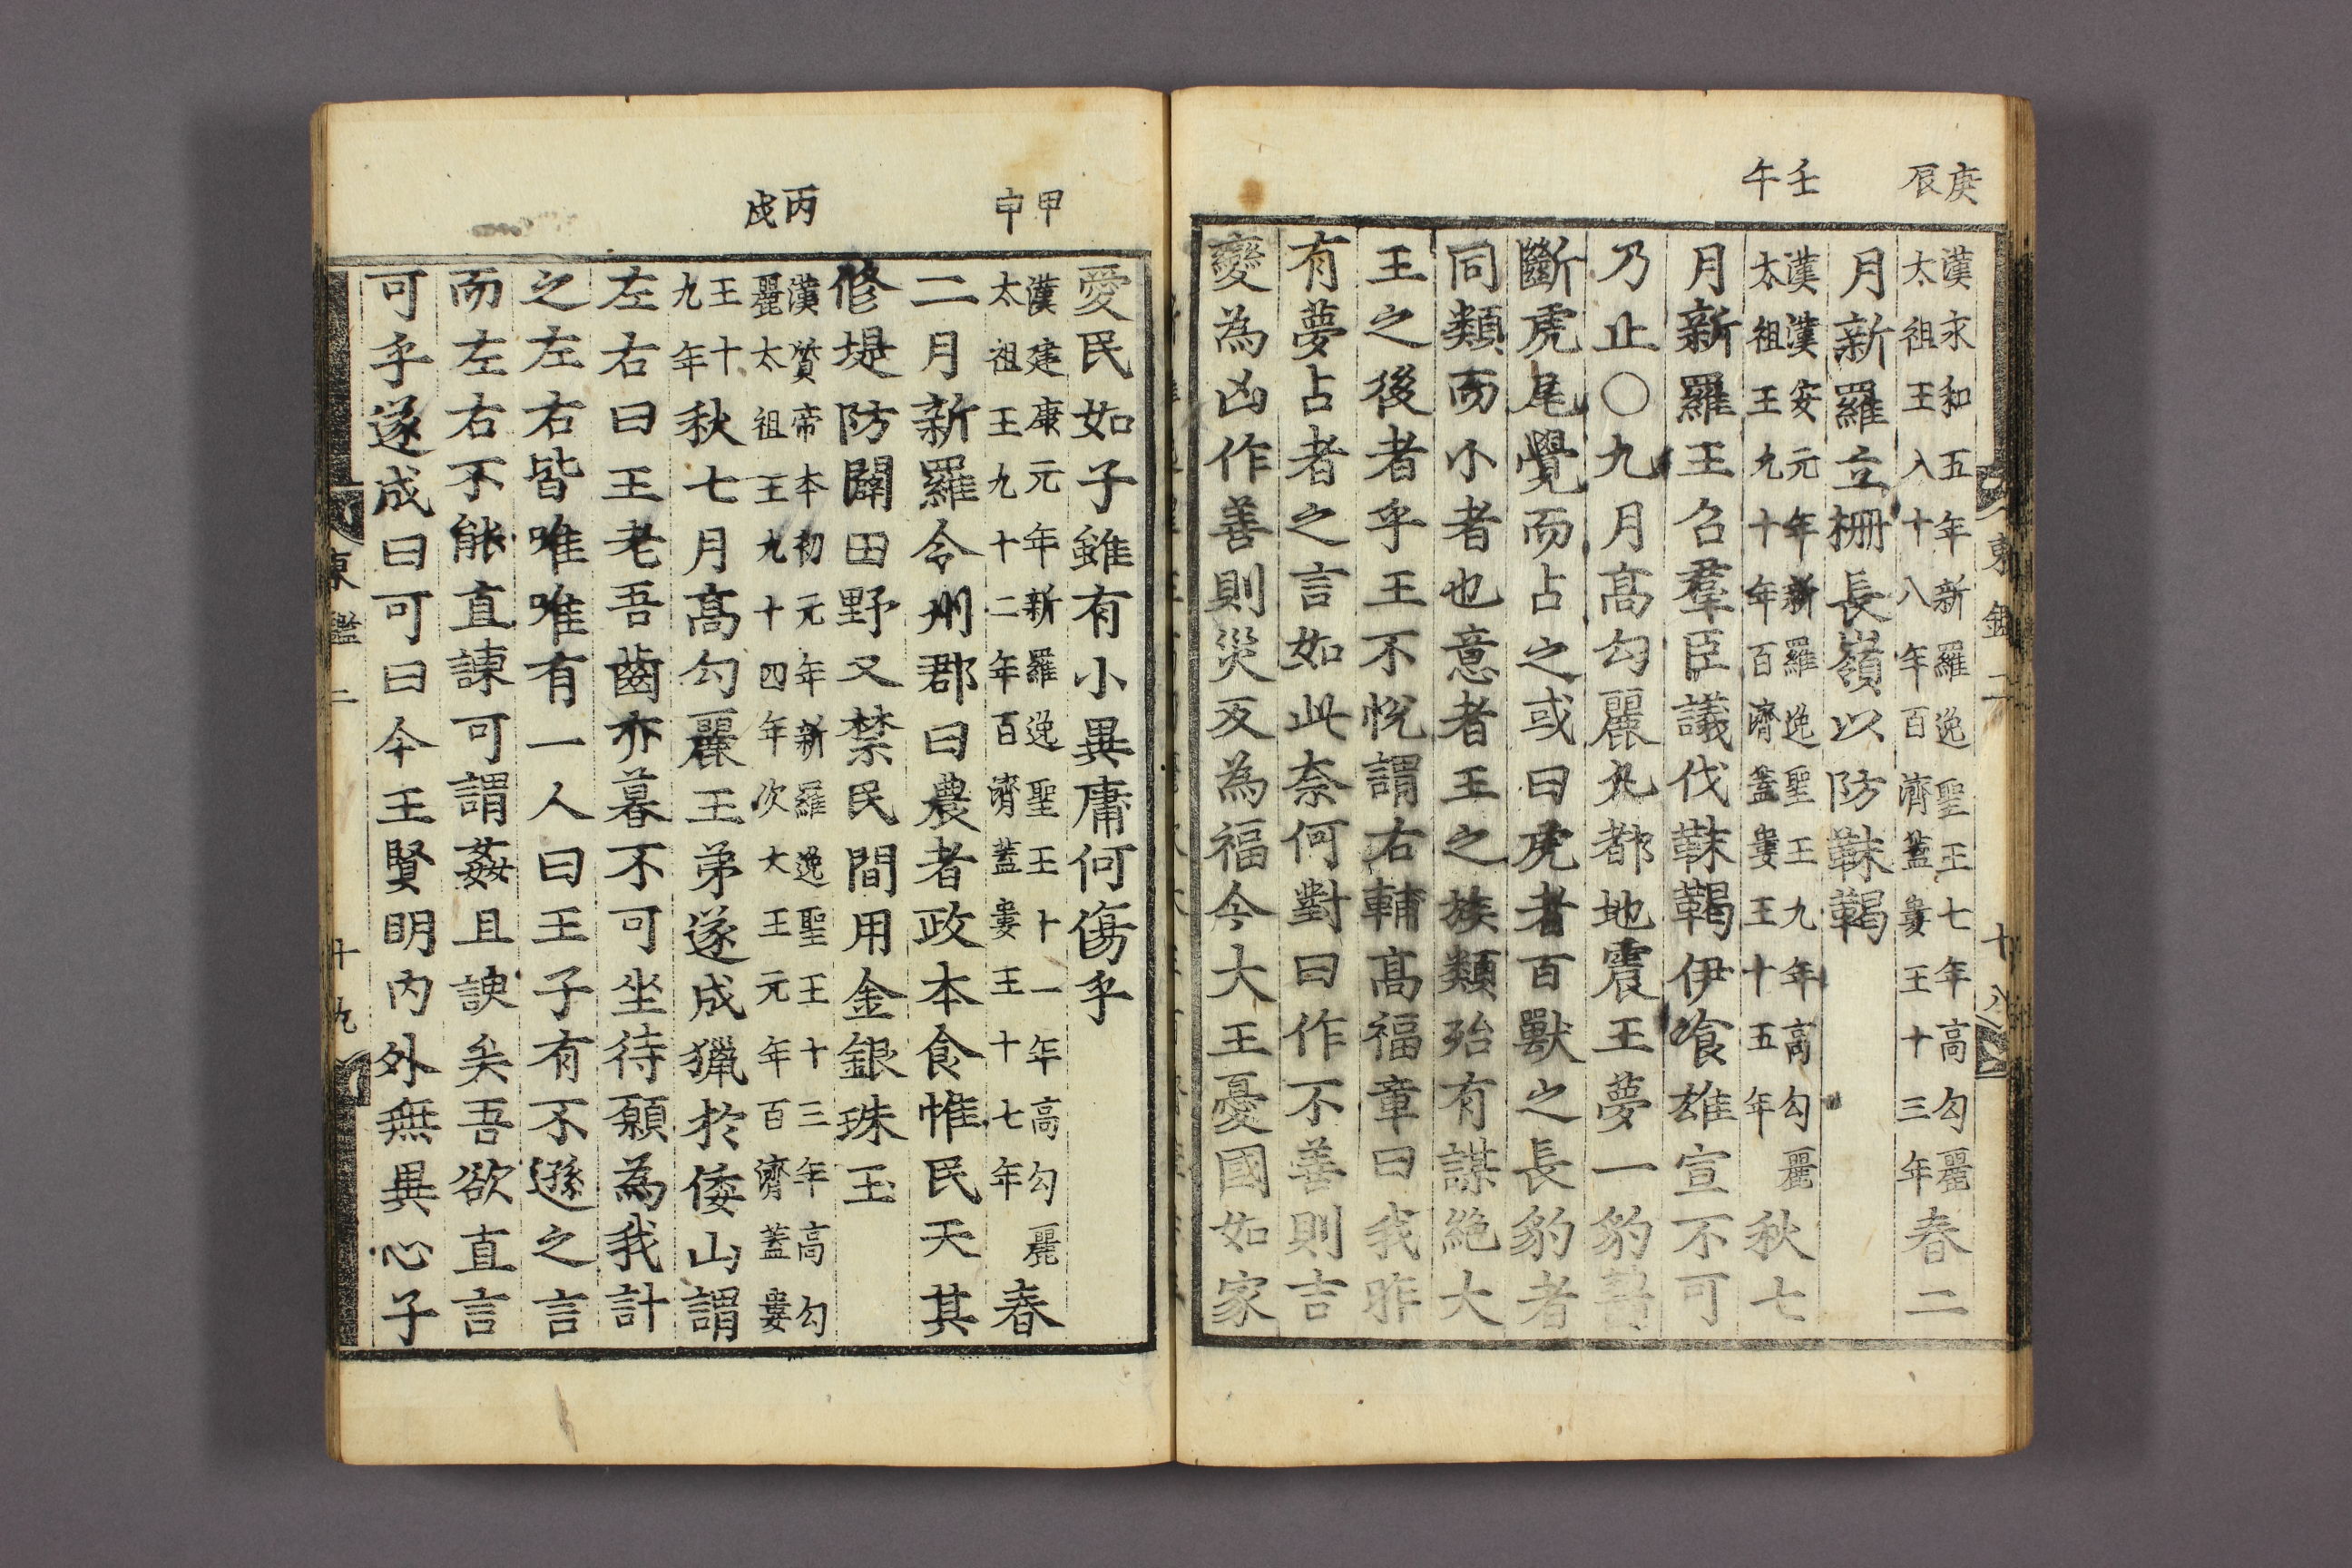 庚辰
漢永和五年新羅逸聖王七年高勾麗
太祖王八十八年百濟蓋婁王十三年春二
月新羅立柵長嶺以防靺鞨
壬午
漢漢安元年新羅逸聖王九年高勾麗
太祖王九十年百濟蓋婁王十五年秋七
月新羅王召羣臣議伐靺鞨伊飡雄宣不可
乃止○九月高勾麗丸都地震王夢一豹齧
斷虎尾覺而占之或曰虎者百獸之長豹者
同類而小者也意者王之族類殆有謀絶大
王之後者乎王不悅謂右輔高福章曰我昨
有夢占者之言如此奈何對曰作不善則吉
變為凶作善則災反為福今大王憂國如家
東鑑二 十八
愛民如子雖有小異庸何傷乎
甲申
漢建康元年新羅逸聖王十一年高勾麗
太祖王九十二年百濟蓋婁王十七年春
二月新羅令州郡曰農者政本食惟民天其
修堤防闢田野又禁民間用金銀珠玉
丙戌
漢質帝本初元年新羅逸聖王十三年高勾
麗太祖王九十四年次大王元年百濟蓋婁
王十九年秋七月高勾麗王弟遂成獵於倭山謂
左右曰王老吾齒亦暮不可坐待願為我計
之左右皆唯唯有一人曰王子有不遜之言
而左右不能直諫可謂姦且諛矣吾欲直言
可乎遂成曰可曰今王賢明內外無異心子
東鑑二 十九